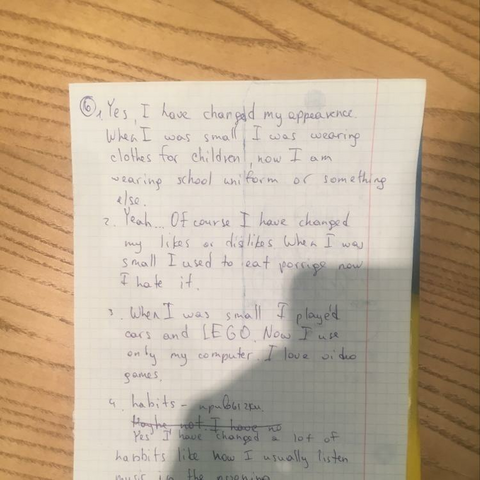 ⑥ 1 Yes, I have changed my appearence
When I was small I was wearing
clothes for children, now I am
wearing school uniform or something
else.
2. Yeah... Of course I have changed
my likes or dislikes When I was
small I used to eat porrige now
I hate it.
3. When I was small I played
cars and LEGO. Now I use
only my computer. I love video
games.
4. habits - привычки
Maybe not I have no
Yes I have changed a lot of
habbits like now I usually listen
music in the morning